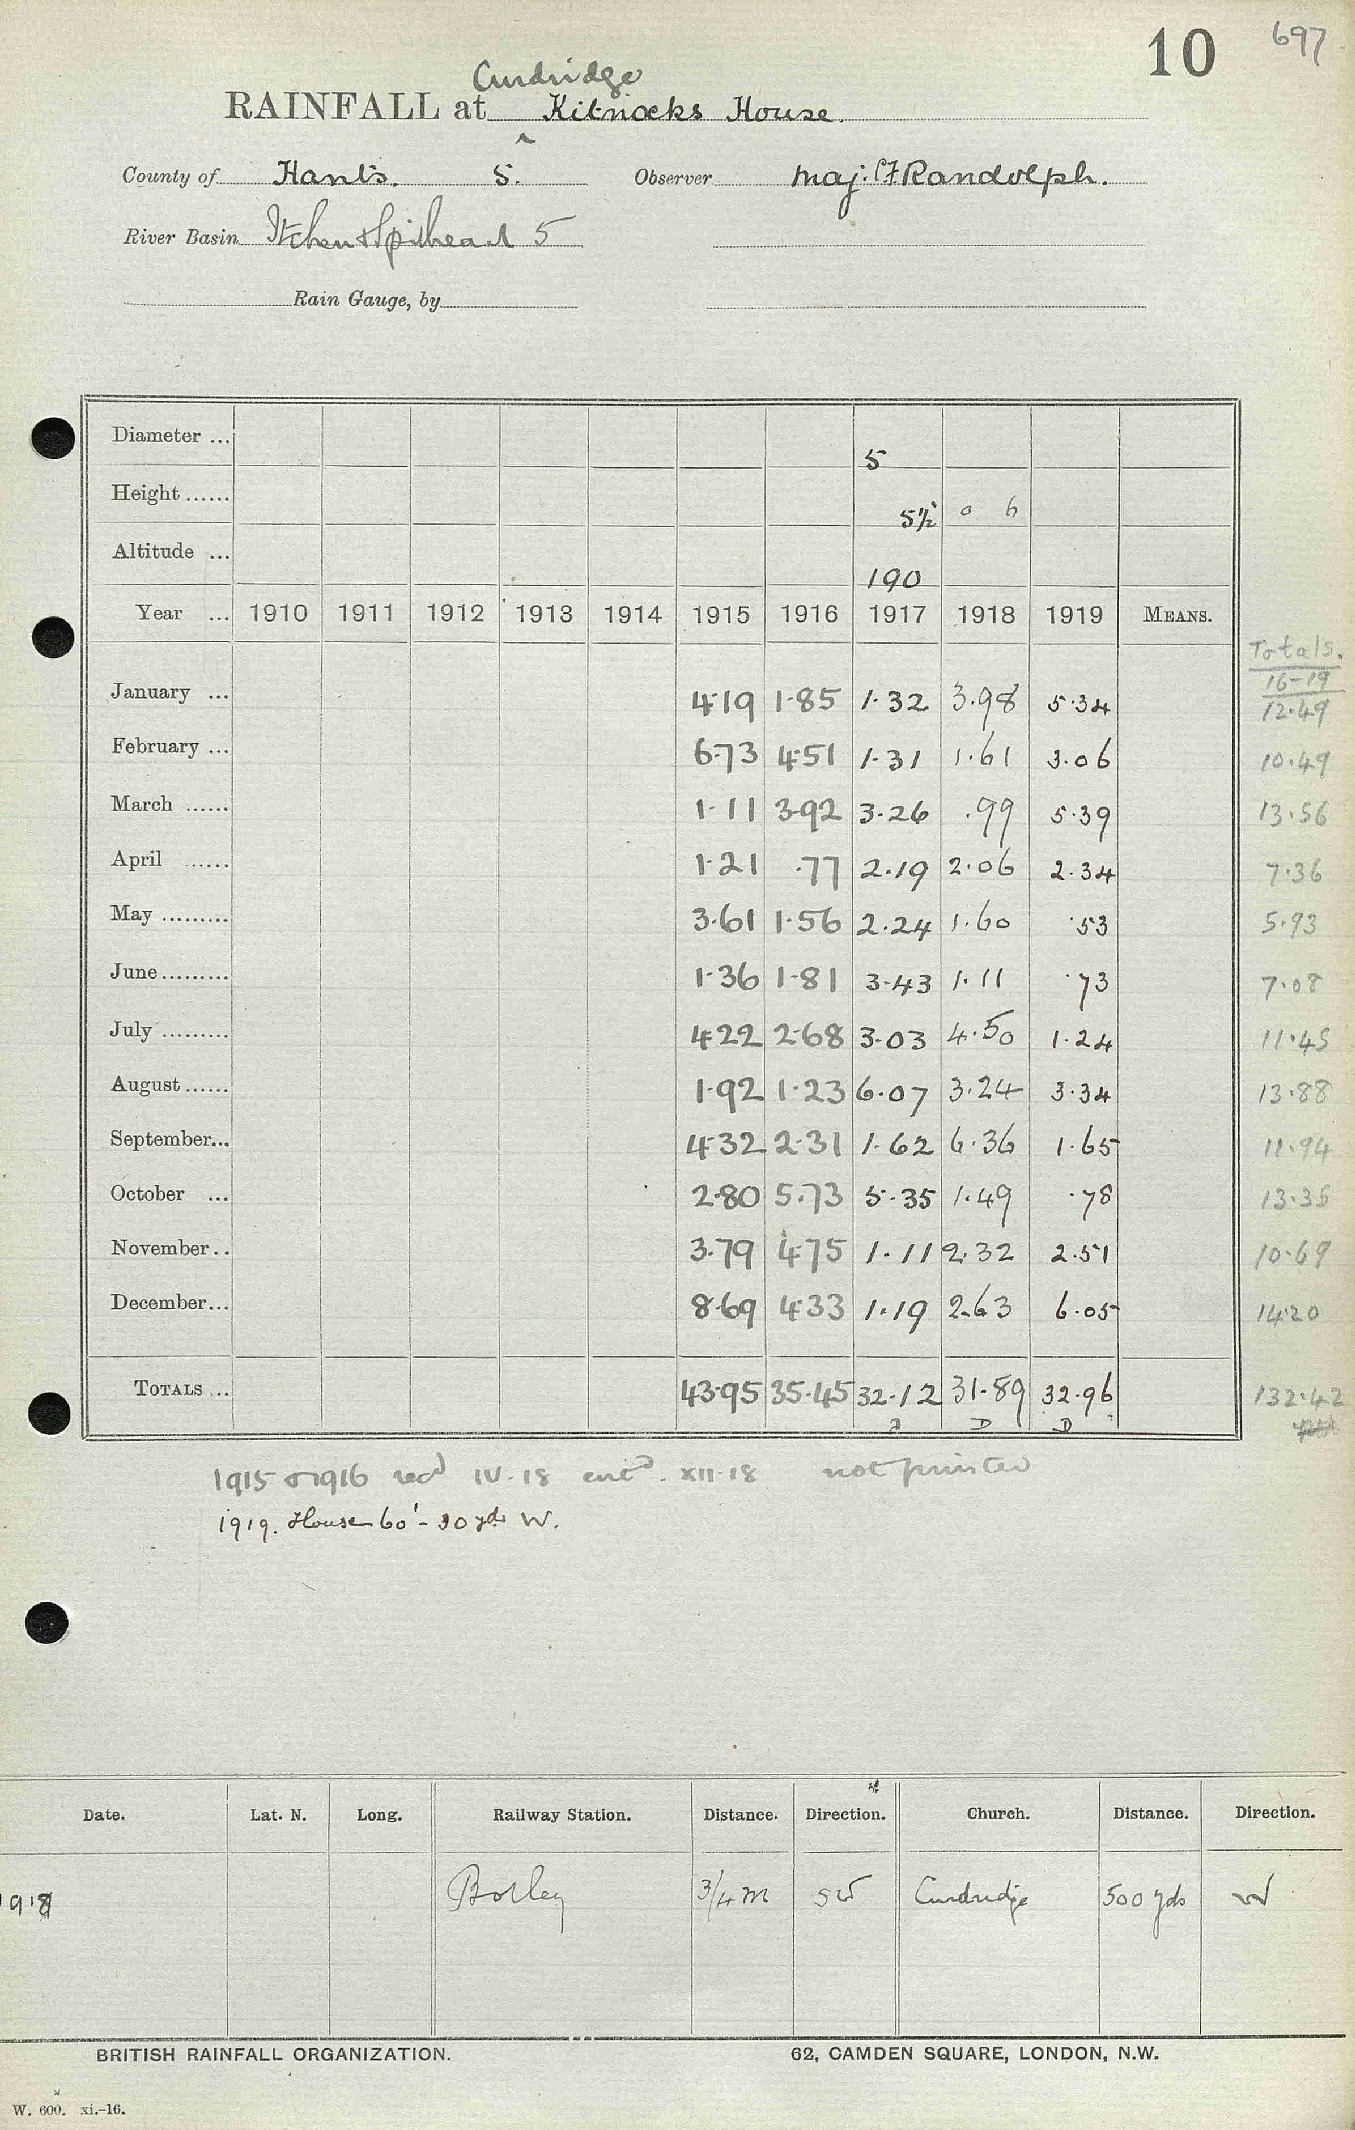 10 697
Curdridge
RAINFALL at Kitnocks House.
^
County of Hants. S. Observer Maj: F Randolph.
River Basin Itchen & Spithead 5
Rain Gauge, by
Diameter ... 5
Height ...... 5½ 0 6
Altitude ... 190
Year ... 1910 1911 1912 1913 1914 1915 1916 1917 1918 1919 MEANS.
Totals.
16-19
January ... 4.19 1.85 1.32 3.98 5.34 12.49
February ... 6.73 4.51 1.31 1.61 3.06 10.49
March ...... 1.11 3.92 3.26 .99 5.39 13.56
April ...... 1.21 .77 2.19 2.06 2.34 7.36
May ......... 3.61 1.56 2.24 1.60 .53 5.93
June ......... 1.36 1.81 3.43 1.11 .73 7.08
July ......... 4.22 2.68 3.03 4.50 1.24 11.45
August ...... 1.92 1.23 6.07 3.24 3.34 13.88
September... 4.32 2.31 1.62 6.36 1.65 11.94
October ... 2.80 5.73 5.35 1.49 .78 13.35
November .. 3.79 4.75 1.11 2.32 2.51 10.69
December... 8.69 4.33 1.19 2.63 6.05 14.20
TOTALS ... 43.95 35.45 32.12 31.89 32.96 132.42
D D D
1915 & 1916 recd IV.18 entd. XII.18 not printed
1919. House 60' - 30 yds W.
Date. Lat. N. Long. Railway Station. Distance. Direction. Church. Distance. Direction.
1918 Botley 3/4 m SW Curdridge 500 yds W
BRITISH RAINFALL ORGANIZATION. 62, CAMDEN SQUARE, LONDON, N.W.
W. 600. xi.-16.